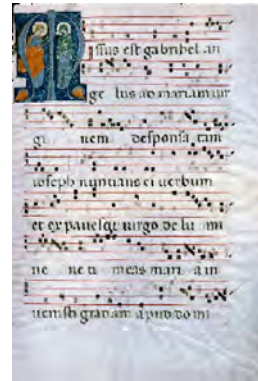 Missus est gabrihel an
ge lus ad mariam uir
gi nem desponsa tam
ioseph nuntians ei uerbum
et expauescit uirgo de lu mi
ne ne ti meas mari a in
uenisti gratiam apud domi